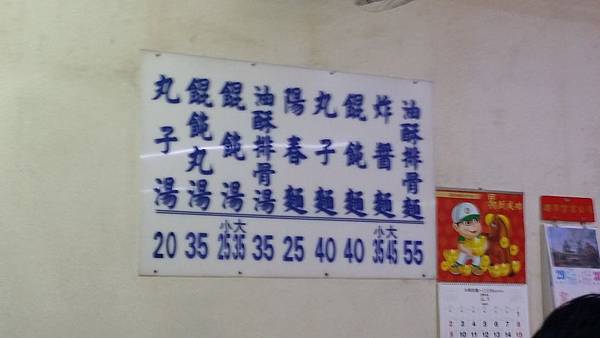 油酥排骨麵 55
炸醬麵 小35 大45
餛飩麵 40
丸子麵 40
陽春麵 25
油酥排骨湯 35
餛飩湯 小25 大35
餛飩丸湯 35
丸子湯 20